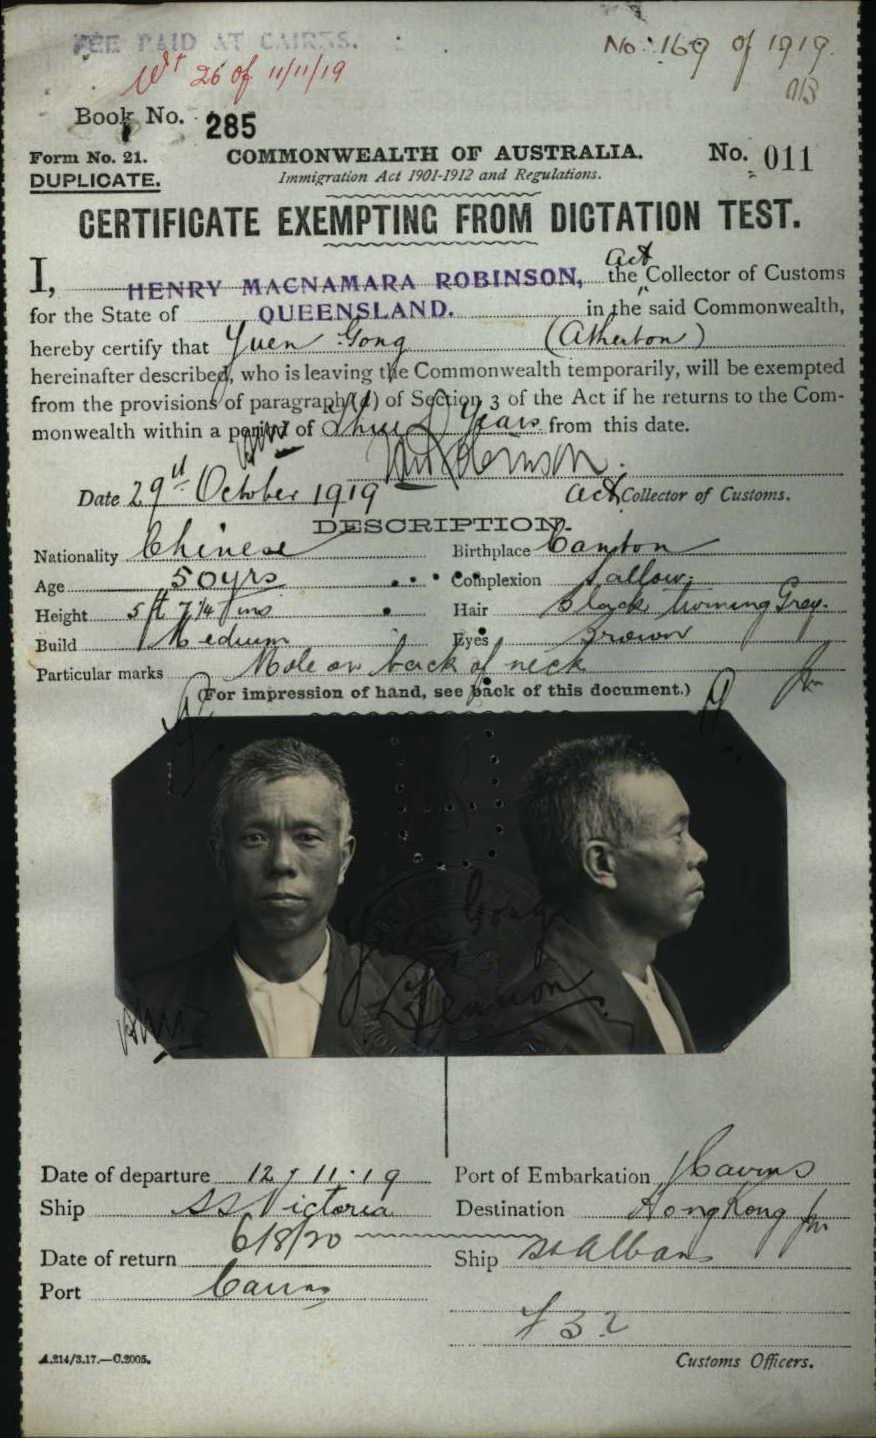 FEE PAID AT CAIRNS.
No. 169 of 1919.
26 of 11/11/19
Book No. 285
Form No. 21. COMMONWEALTH OF AUSTRALIA. No. 011
DUPLICATE. Immigration Act 1901-1912 and Regulations.
CERTIFICATE EXEMPTING FROM DICTATION TEST.
I, HENRY MACNAMARA ROBINSON, the Act Collector of Customs
for the State of QUEENSLAND. in the said Commonwealth,
hereby certify that Yuen Gong (Atherton)
hereinafter described, who is leaving the Commonwealth temporarily, will be exempted
from the provisions of paragraph (a) of Section 3 of the Act if he returns to the Com-
monwealth within a period of Three Years from this date.
Date 29th October 1919 Act Collector of Customs.
DESCRIPTION.
Nationality Chinese Birthplace Canton
Age 50 yrs Complexion Sallow
Height 5 ft 7 1/4 ins Hair black turning Grey.
Build Medium Eyes Brown
Particular marks Mole on back of neck
(For impression of hand, see back of this document.)
Yuen Gong
Date of departure 12.11.19 Port of Embarkation Cairns
Ship SS Victoria Destination Hong Kong
Date of return 6/8/20 Ship St Albans
Port Cairns
A.214/3.17.—C.2005. Customs Officers.